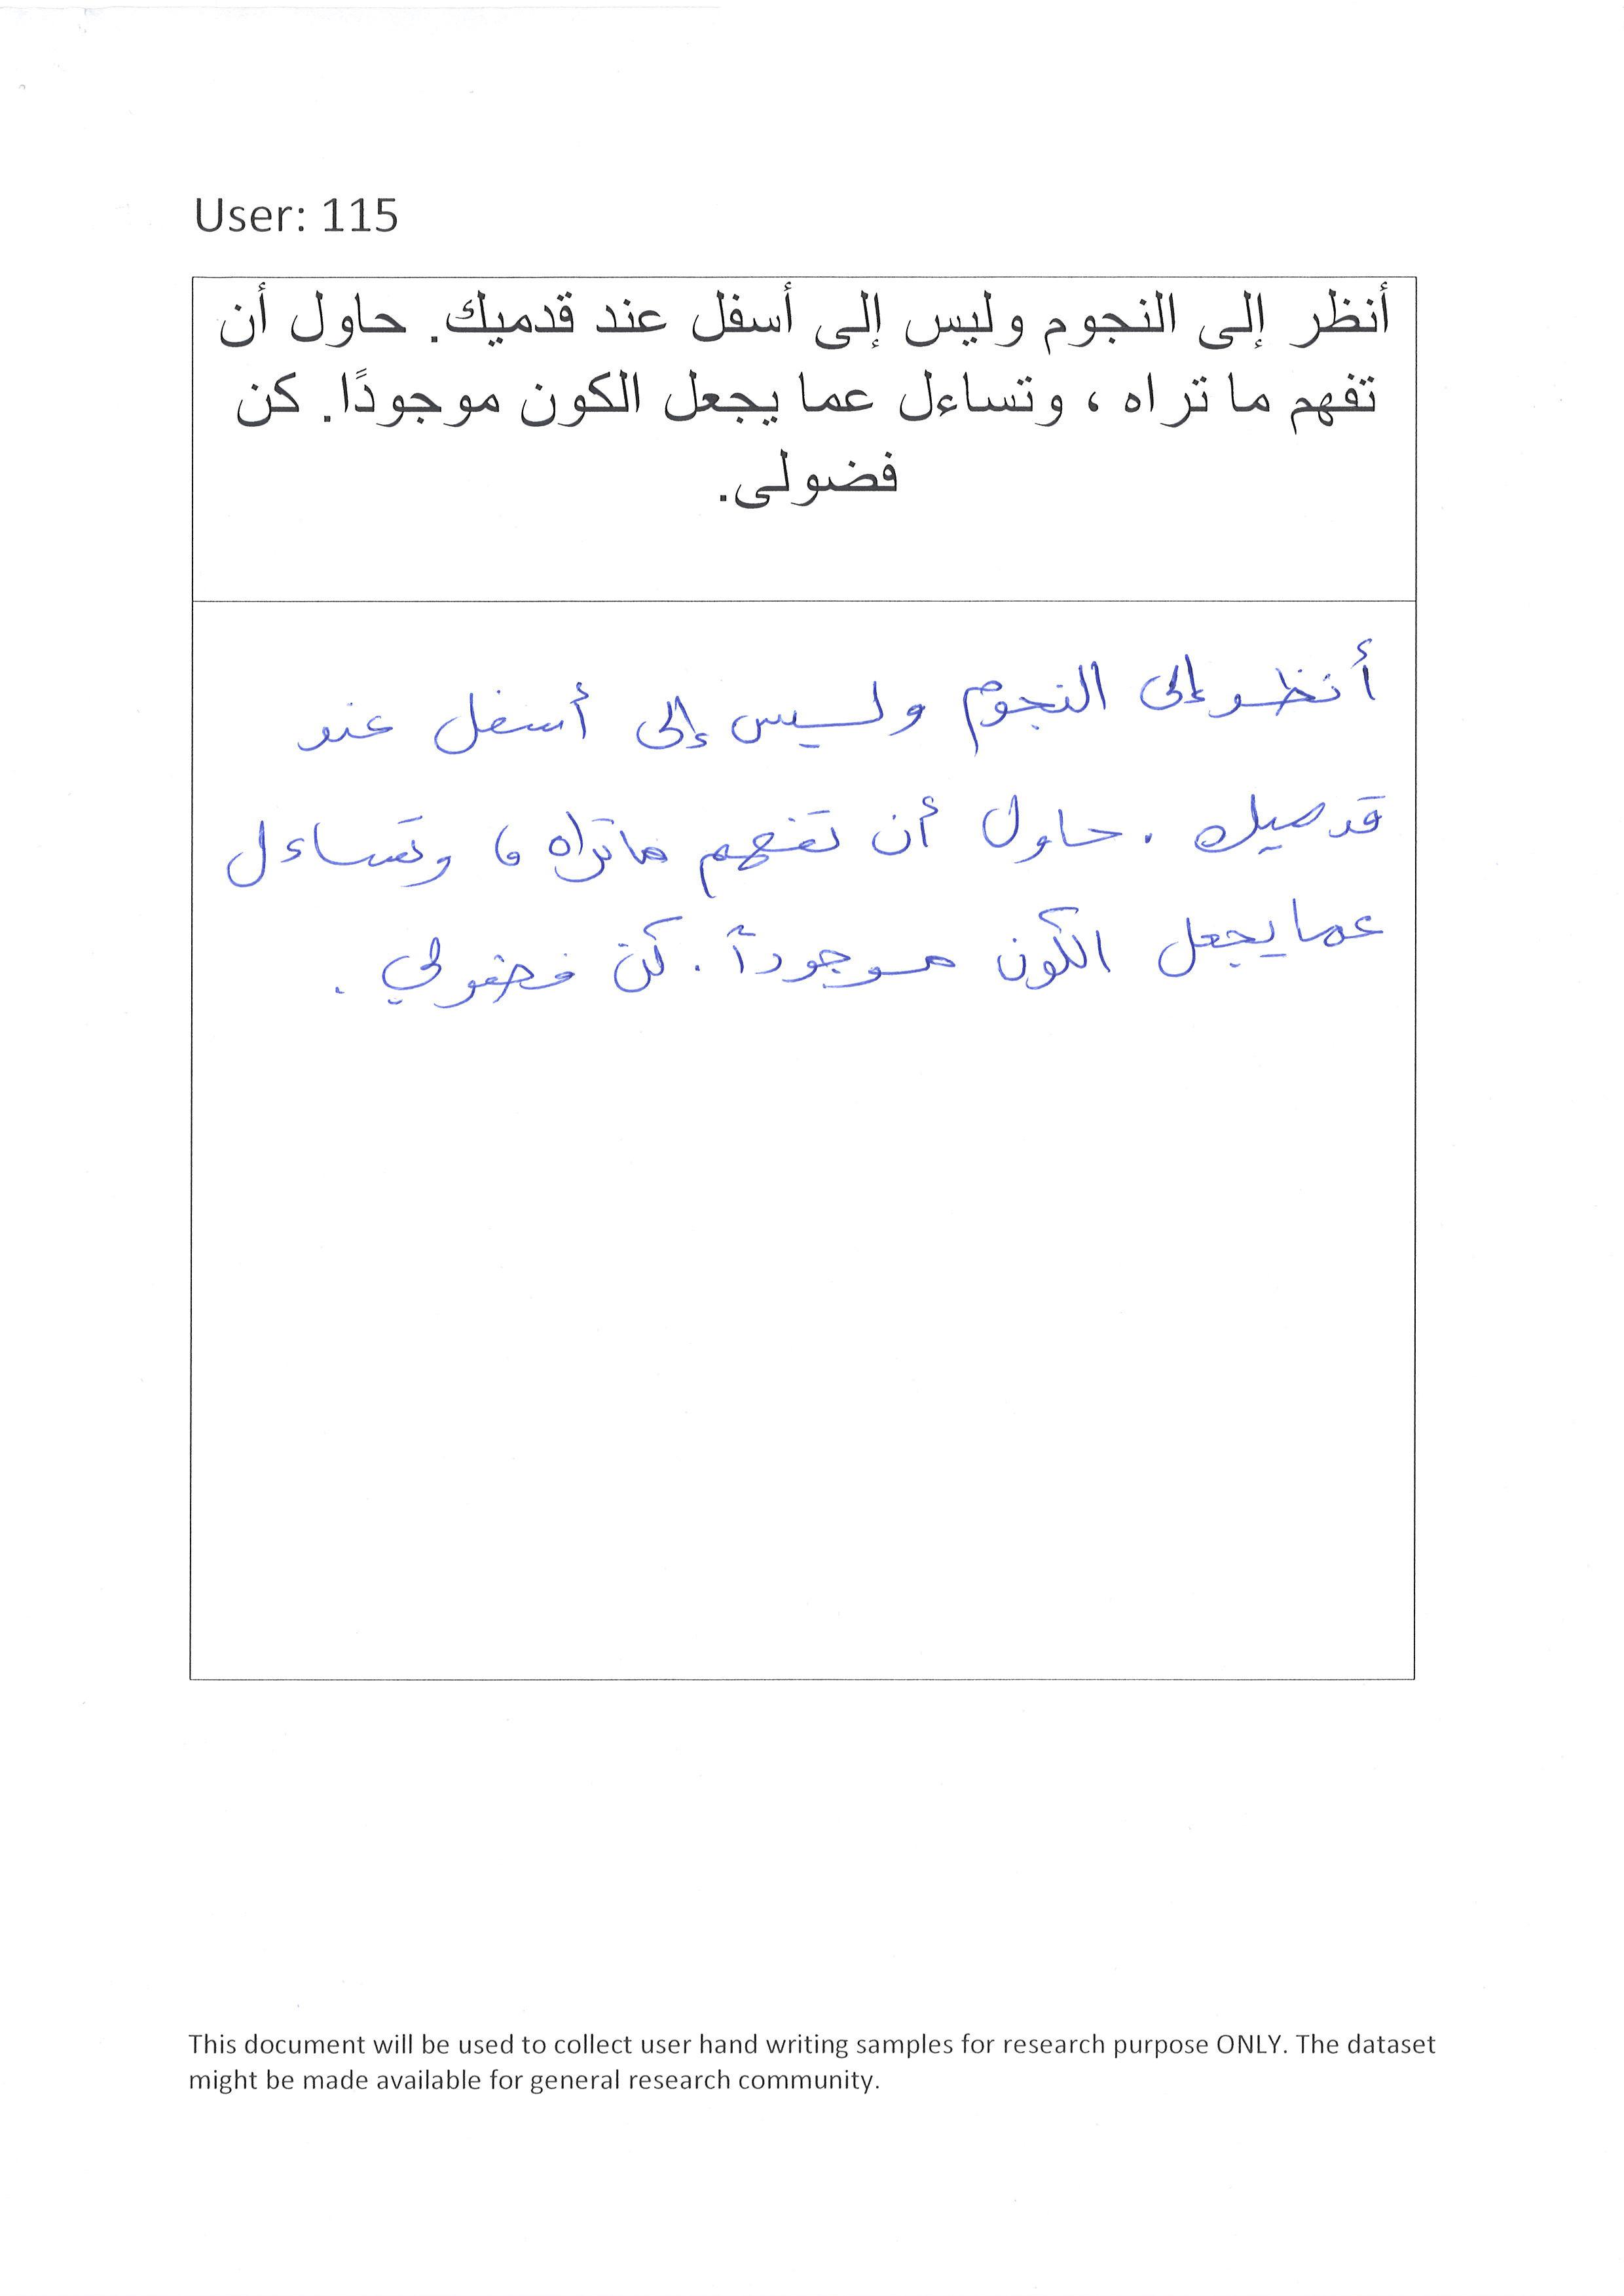 User: 115
أنظر إلى النجوم وليس إلى أسفل عند قدميك. حاول أن
تفهم ما تراه ، وتساءل عما يجعل الكون موجودًا. كن
فضولى.
أنظر إلى النجوم وليس إلى أسفل عند
قدميك . حاول أن تفهم ماتراه ، وتساءل
عما يجعل الكون موجوداً . كن فضولي .
This document will be used to collect user hand writing samples for research purpose ONLY. The dataset
might be made available for general research community.